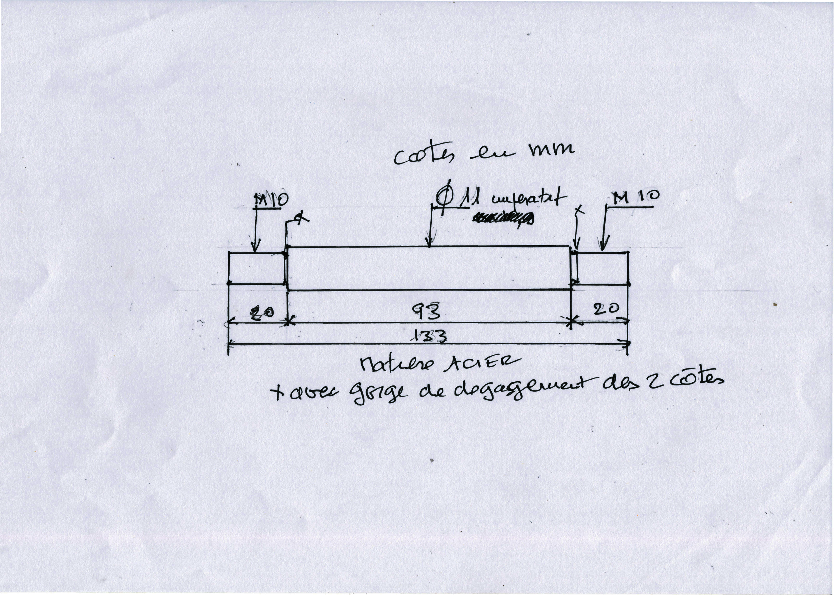 cotes en mm
M10
x
Ø 11 imperatif
x
M10
20
93
20
133
Matiere ACIER
x avec gorge de degagement des 2 côtes